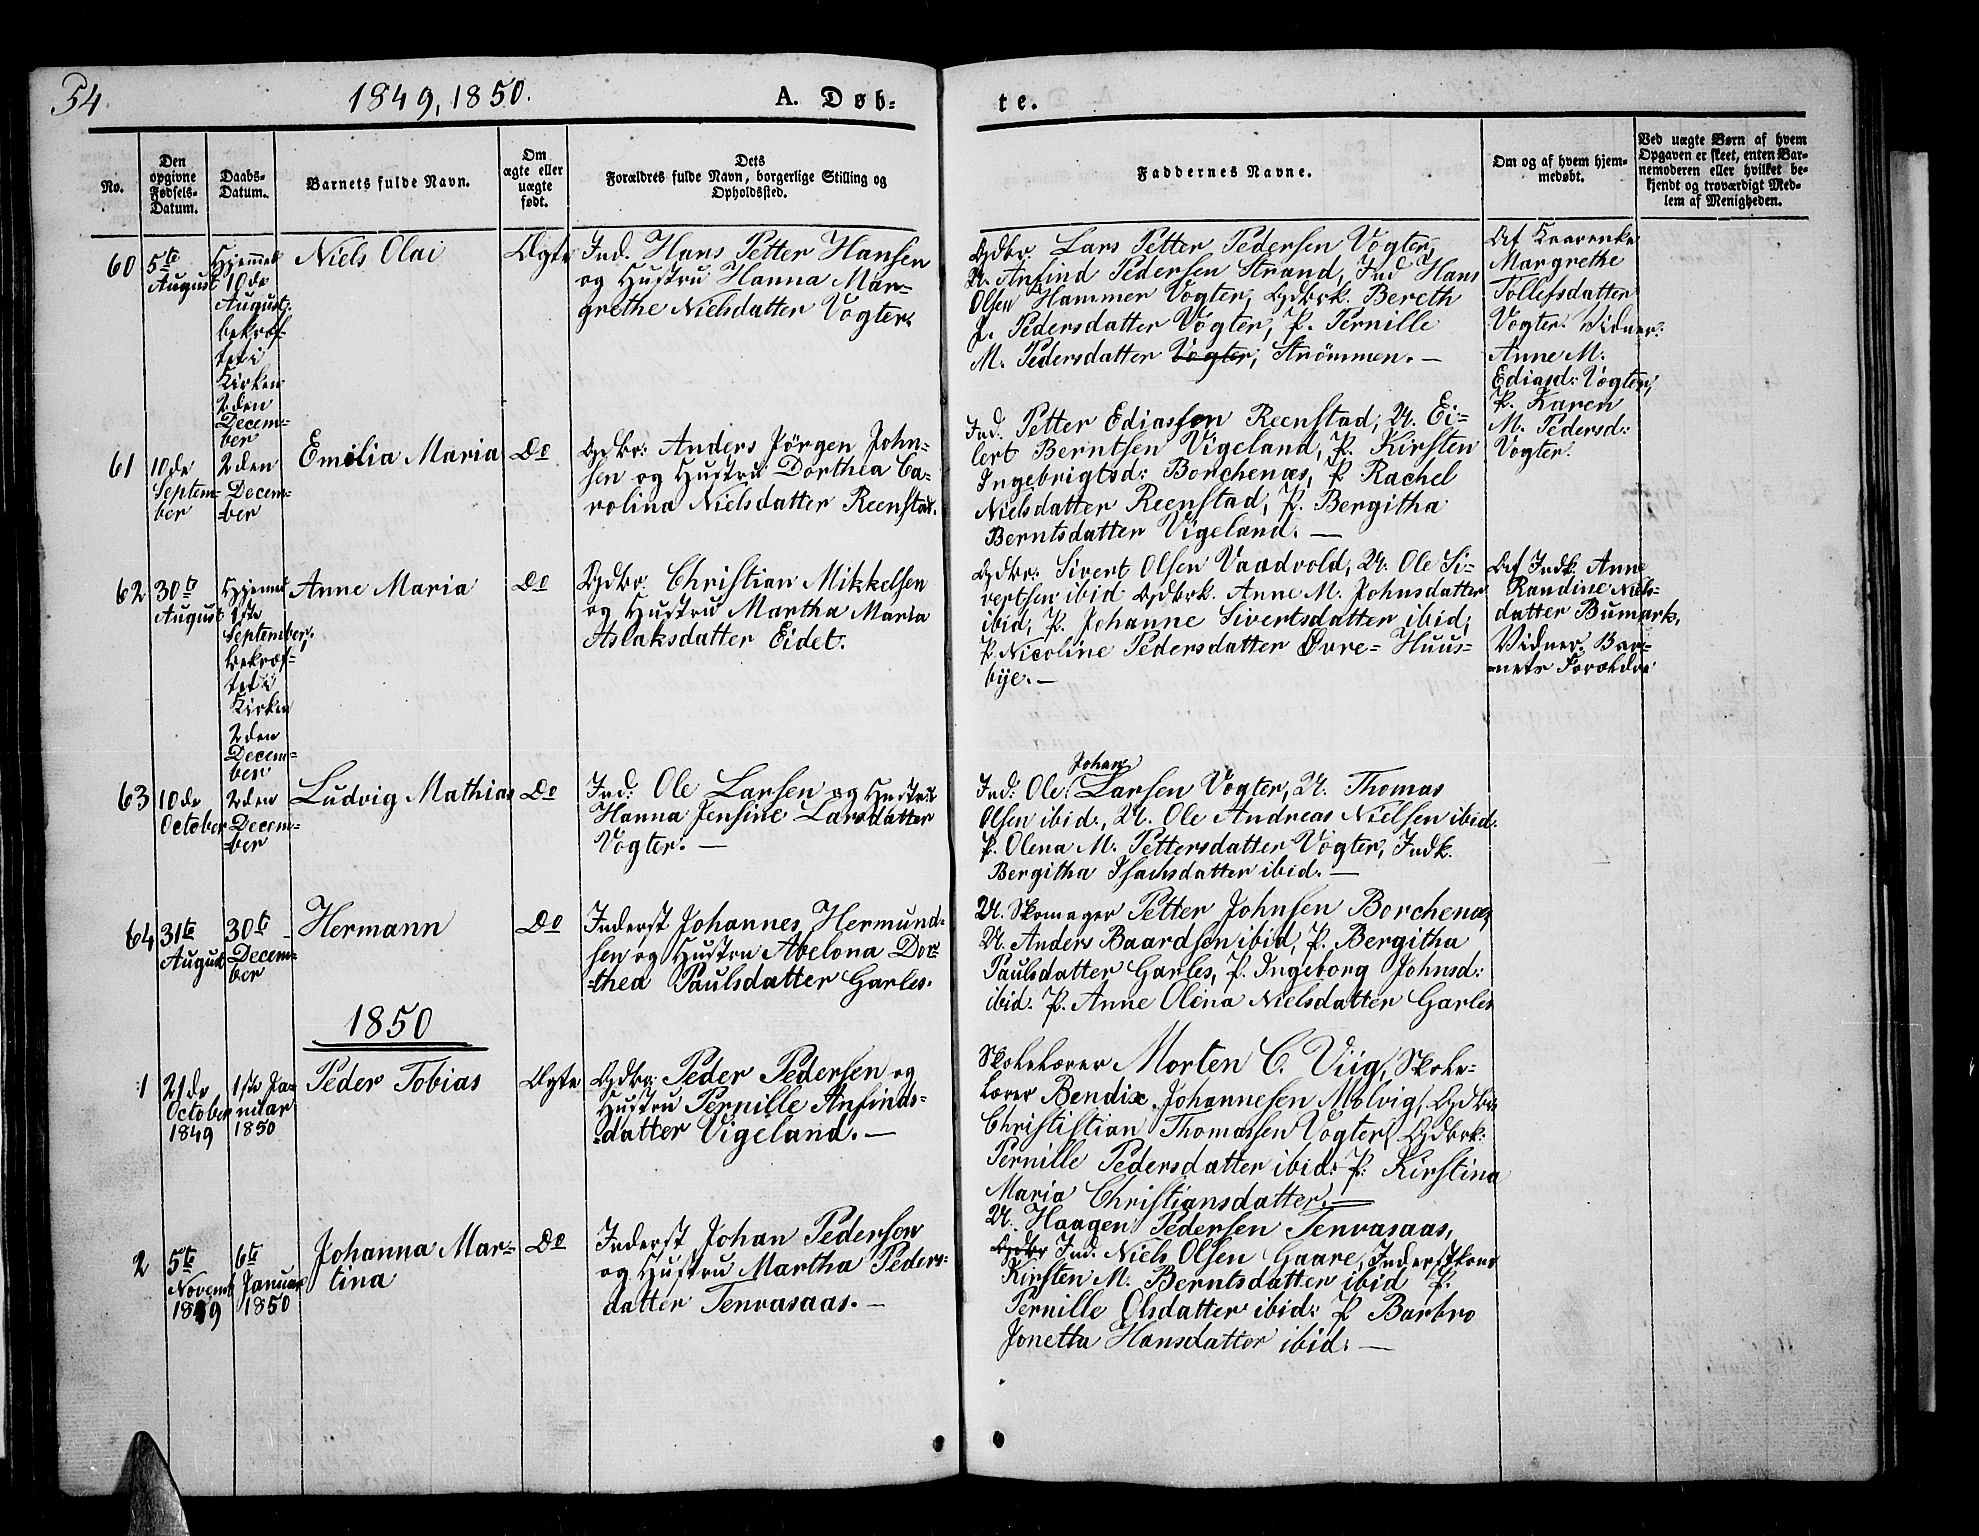 54
1849, 1850.
A. Døb-
te.
No.
Den
opgivne
Fødsels-
Datum.
Daabs-
Datum.
Barnets fulde Navn.
Om
ægte eller
uægte
født.
Dets
Forældres fulde Navn, borgerlige Stilling og
Opholdssted.
Faddernes Navne.
Om og af hvem hjem-
medøbt.
Ved uægte Børn af hvem
Opgaven er skeet, enten Bar-
nemoderen eller hvilket be-
kjendt og troværdigt Med-
lem af Menigheden.
60
5te
August
Hjemmed
10de
August;
bekræf-
tet i
Kirken
2den
Decem-
ber
Niels Olai
Ægte
Ind. Hans Petter Hansen
og Hustru Hanna Mar-
grethe Nielsdatter Vogter.
Gdbr. Lars Petter Pedersen Vogter,
U. Anfind Pedersen Strand, Ind Hans
Olsen Hammer Vogter, Gdbrk. Bereth
J. Pedersdatter Vogter, P. Pernille
M. Pedersdatter Vogter, Strömmen. —
Af
Margrethe
Tollefsdatter
Vogter. Vidner:
Anne M.
Ediasd: Vogter,
P. Karen
M. Pedersd:
Vogter.
61
10de
Septem-
ber
2den
Decem-
ber
Emilia Maria
Do
Gdbr: Anders Jörgen John-
sen og Hustru Dorthea Ca-
rolina Nielsdatter Reenstad.
Ind. Petter Ediassen Reenstad, U. Ei-
lert Berntsen Vigeland, P. Kirsten
Ingebrigtsd: Borchenæs, P Rachel
Nielsdatter Reenstad, P. Bergitha
Berntsdatter Vigeland. —
62
30te
August
Hjemmed
2den
September;
bekræf-
tet i
Kirken
2den
Decem-
ber
Anne Maria
Do
Gdbr. Christian Mikkelsen
og Hustru Martha Maria
Aslaksdatter Eidet.
Gdbr. Sivert Olsen Vaadvold, U. Ole Si-
vertsen ibid Gdbrk. Anne M. Johnsdatter
ibid, P. Johanne Sivertsdatter ibid,
P. Nicoline Pedersdatter Øvre- Huus-
bye. —
Af Indk. Anne
Randine Niels-
datter Bumark,
Vidner: Bar-
nets Forældre
63
10de
October
2den
Decem-
ber
Ludvig Mathias
Do
Ind: Ole Larsen og Hustru
Hanna Jensine Larsdatter
Vogter. —
Johan
Ind: Ole Larsen Vogter, U. Thomas
Olsen ibid., U. Ole Andreas Nielsen ibid.
P. Olena M. Pettersdatter Vogter, Indk.
Bergitha Isachsdatter ibid. —
64
31te
August
30te
Decem-
ber
Hermann
Do
Inderst Johannes Hermund-
sen og Hustru Abelona Dor-
thea Paulsdatter Garles.
U. Skomager Petter Johnsen Borchenæs,
U. Anders Baardsen ibid, P. Bergitha
Paulsdatter Garles, P. Ingeborg Johnsd:
ibid. P. Anne Olena Nielsdatter Garles
1850
1
21de
October
1849
1ste Ja-
nuar
1850
Peder Tobias
Ægte
Gdbr: Peder Pedersen og
Hustru Pernille Anfinds-
datter Vigeland. —
Skolelærer Morten C. Viig, Skole-
lærer Bendix Johannesen Molvig, Gdbr.
Christistian Thomassen Vogter, Gdbrk:
Pernille Pedersdatter ibid: P. Kirstina
Maria Christiansdatter. —
2
5te
Novemb
1849
6te
Januar
1850
Johanna Mar-
tina
Do
Inderst Johan Pedersen
og Hustru Martha Peders-
datter Tenvasaas. —
U. Haagen Pedersen Tenvasaas,
Gdbr Ind. Niels Olsen Gaare, Inderstkone
Kirsten M. Berntsdatter ibid P.
Pernille Olsdatter ibid: P Barbro
Jonetta Hansdatter ibid. —